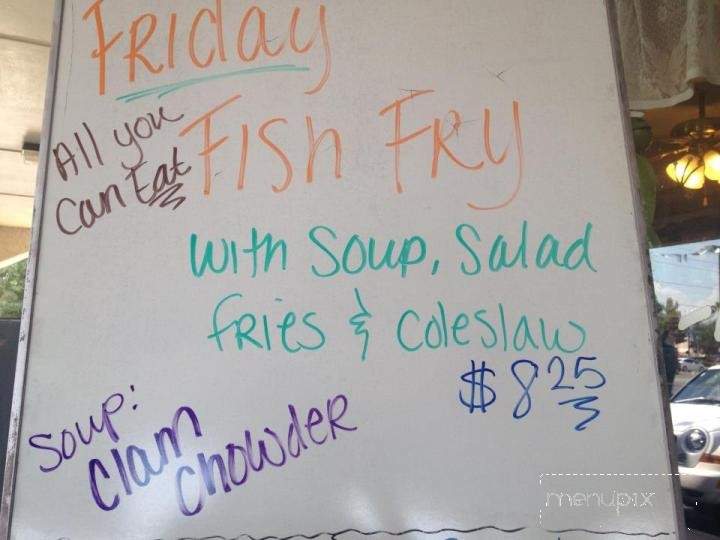 Friday
All you
Can Eat
Fish Fry
with Soup, Salad
fries & coleslaw
$8.25
Soup:
Clam
Chowder
menupix